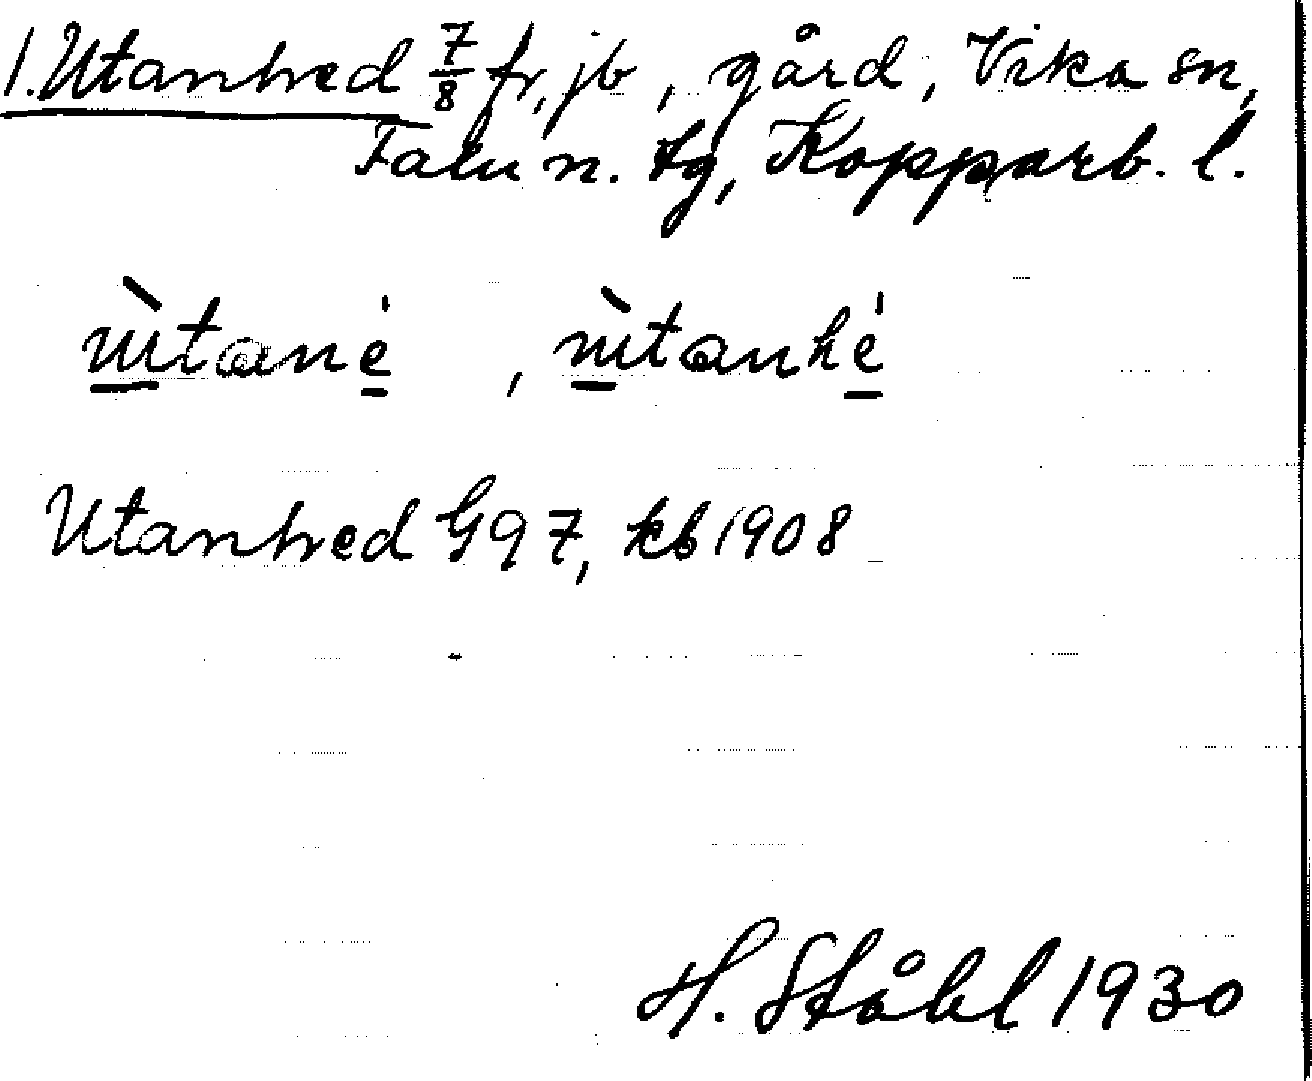 1. Utanhed 7/8 fr, jb, gård, Vika sn,
Falu n. tg, Kopparb. l.
ùtané, ùtanhé
Utanhed G97, kb 1908
H. Ståhl 1930